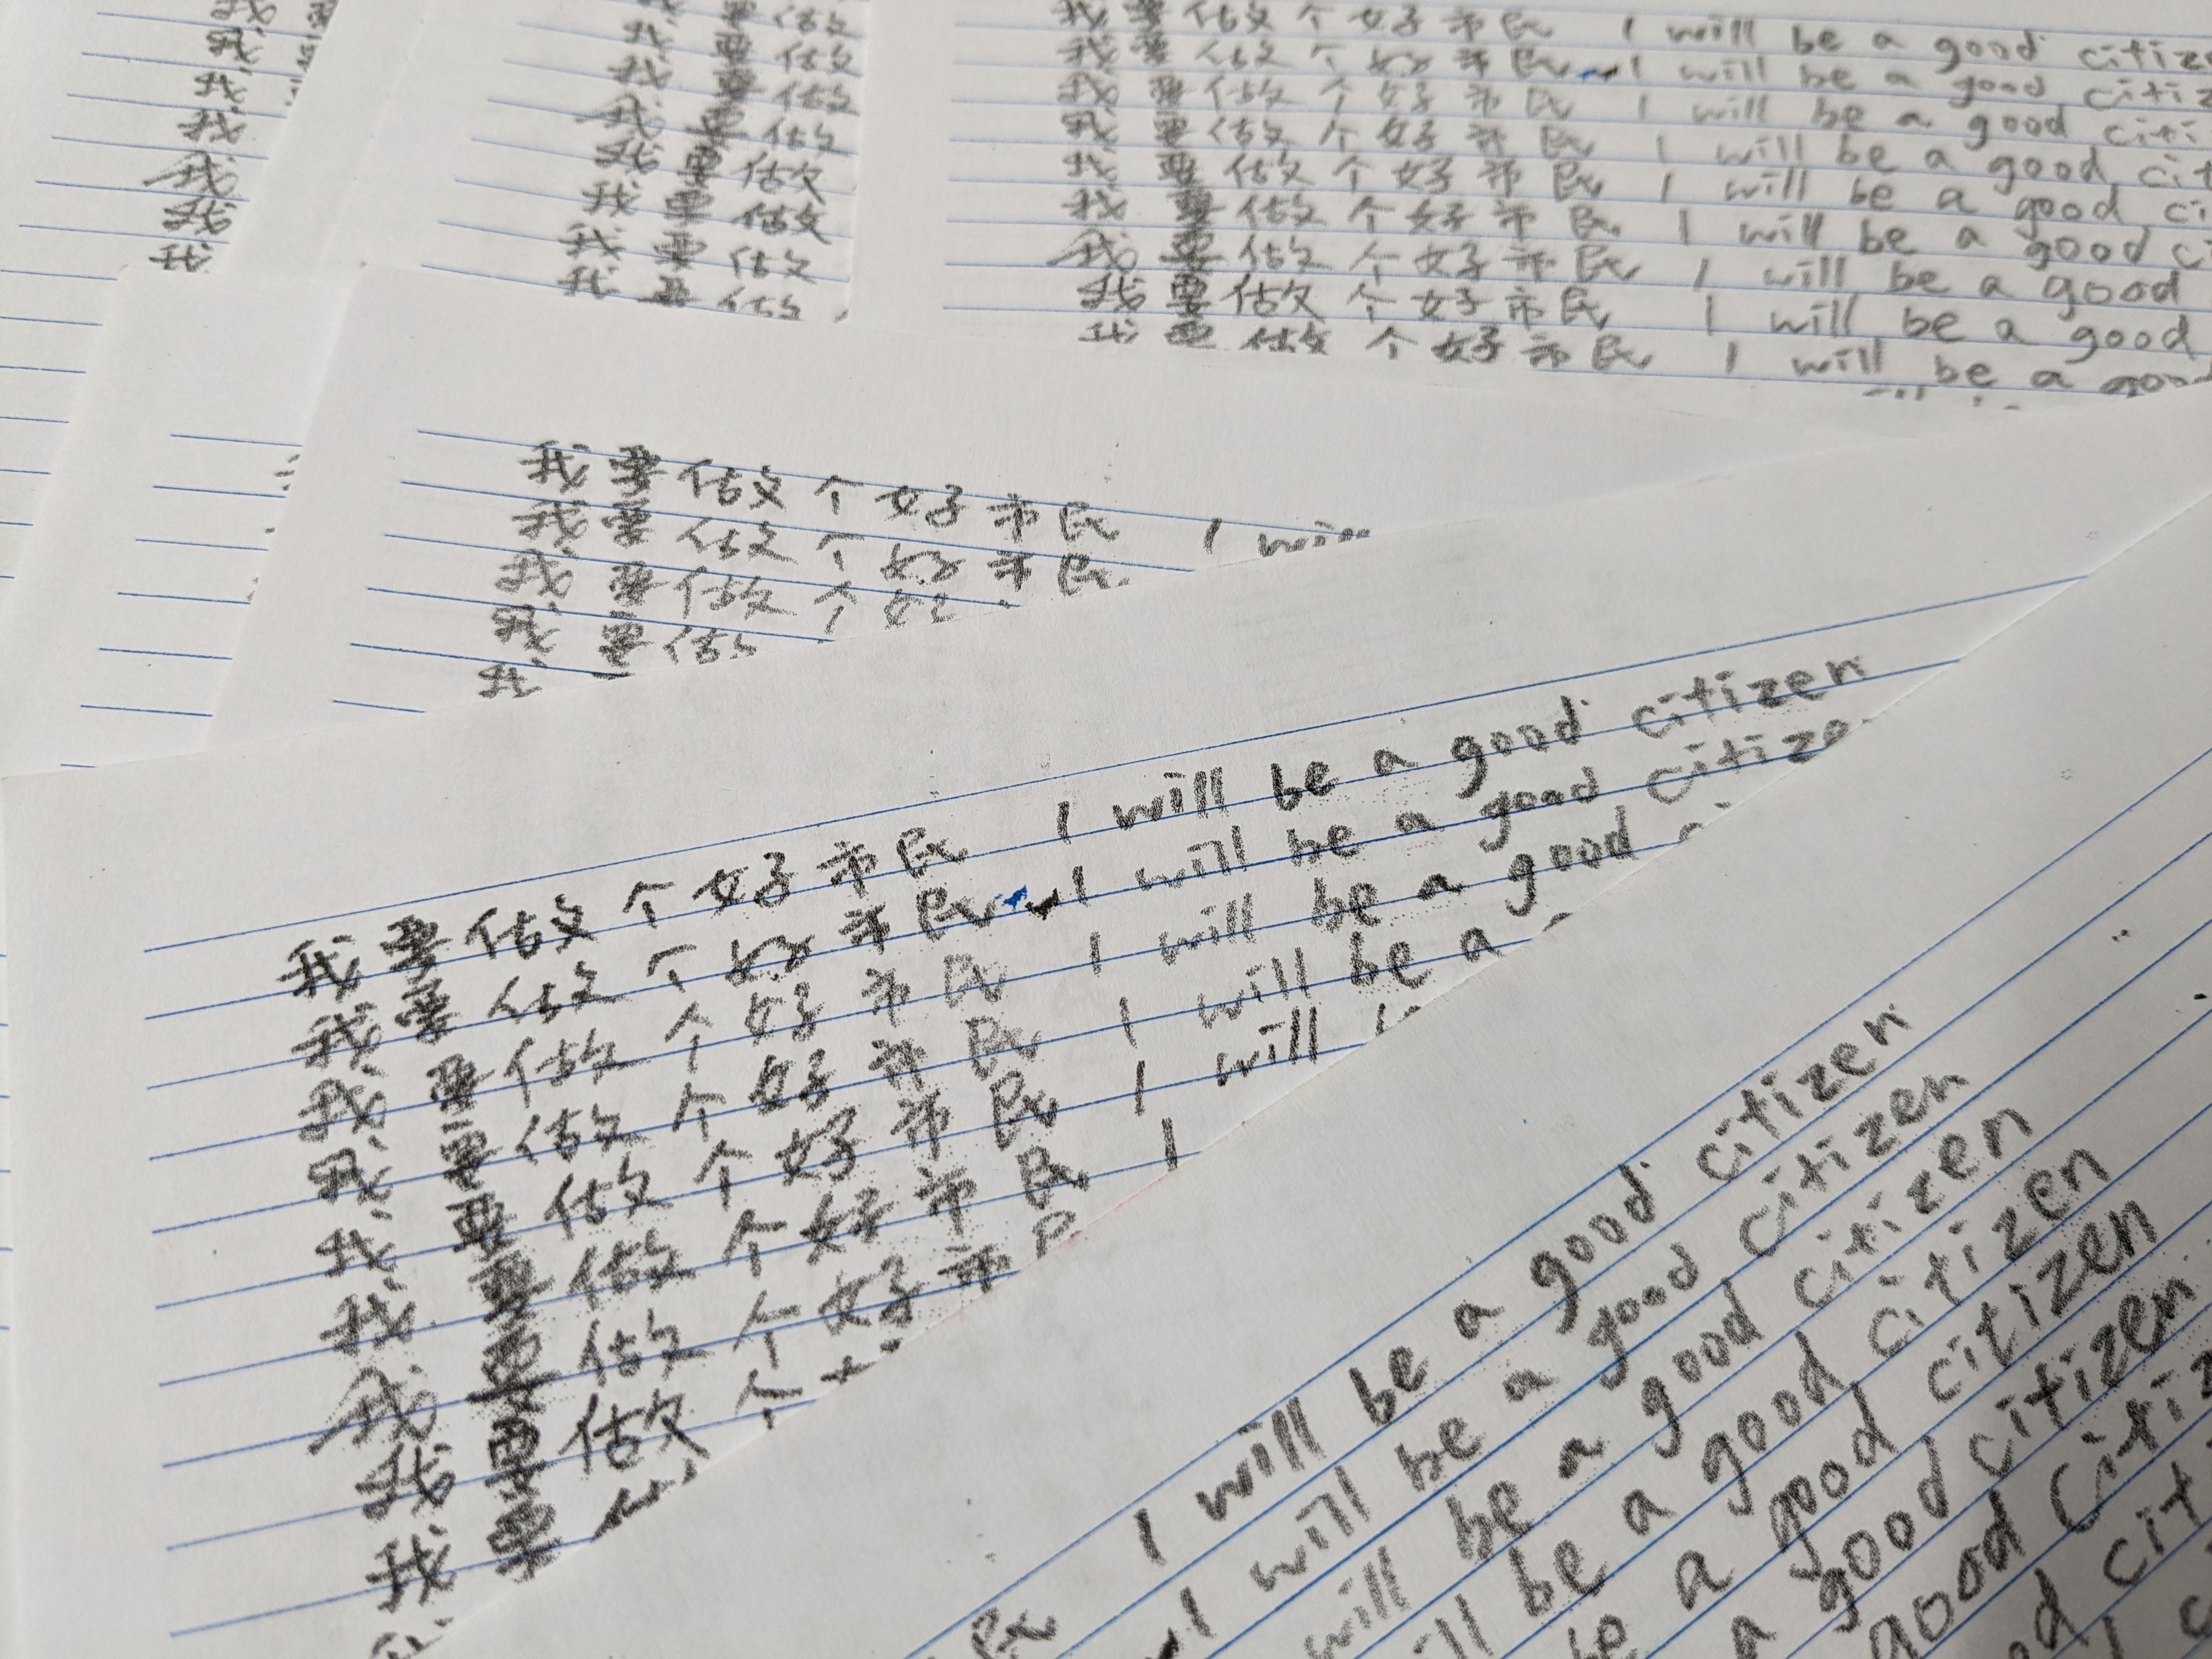 我
我
我
我
我
我
我
我 要 做
我 要 做
我 要 做
我 要 做
我 要 做
我 要 做
我 要 做
我 要 做
我 要 做 个 好 市 民 I will be a good
我 要 做 个 好 市 民 I will be a good
我 要 做 个 好 市 民 I will be a good
我 要 做 个 好 市 民 I will be a good
我 要 做 个 好 市 民 I will be a good
我 要 做 个 好 市 民 I will be a good
我 要 做 个 好 市 民 I will be a good
我 要 做 个 好 市 民 I will be a good
我 要 做 个 好 市 民 I will be a good
我 要 做 个 好 市 民 I will
我 要 做 个 好 市 民
我 要 做 个 好
我 要 做
我
我 要 做 个 好 市 民 I will be a good citizen
我 要 做 个 好 市 民 I will be a good
我 要 做 个 好 市 民 I will be a good
我 要 做 个 好 市 民 I will be a
我 要 做 个 好 市 民 I will
我 要 做 个 好 市 民 I
我 要 做 个 好 市
我 要 做 个
我 要
I will be a good citizen
民 I will be a good citizen
will be a good citizen
will be a good citizen
be a good citizen
a good citizen
good